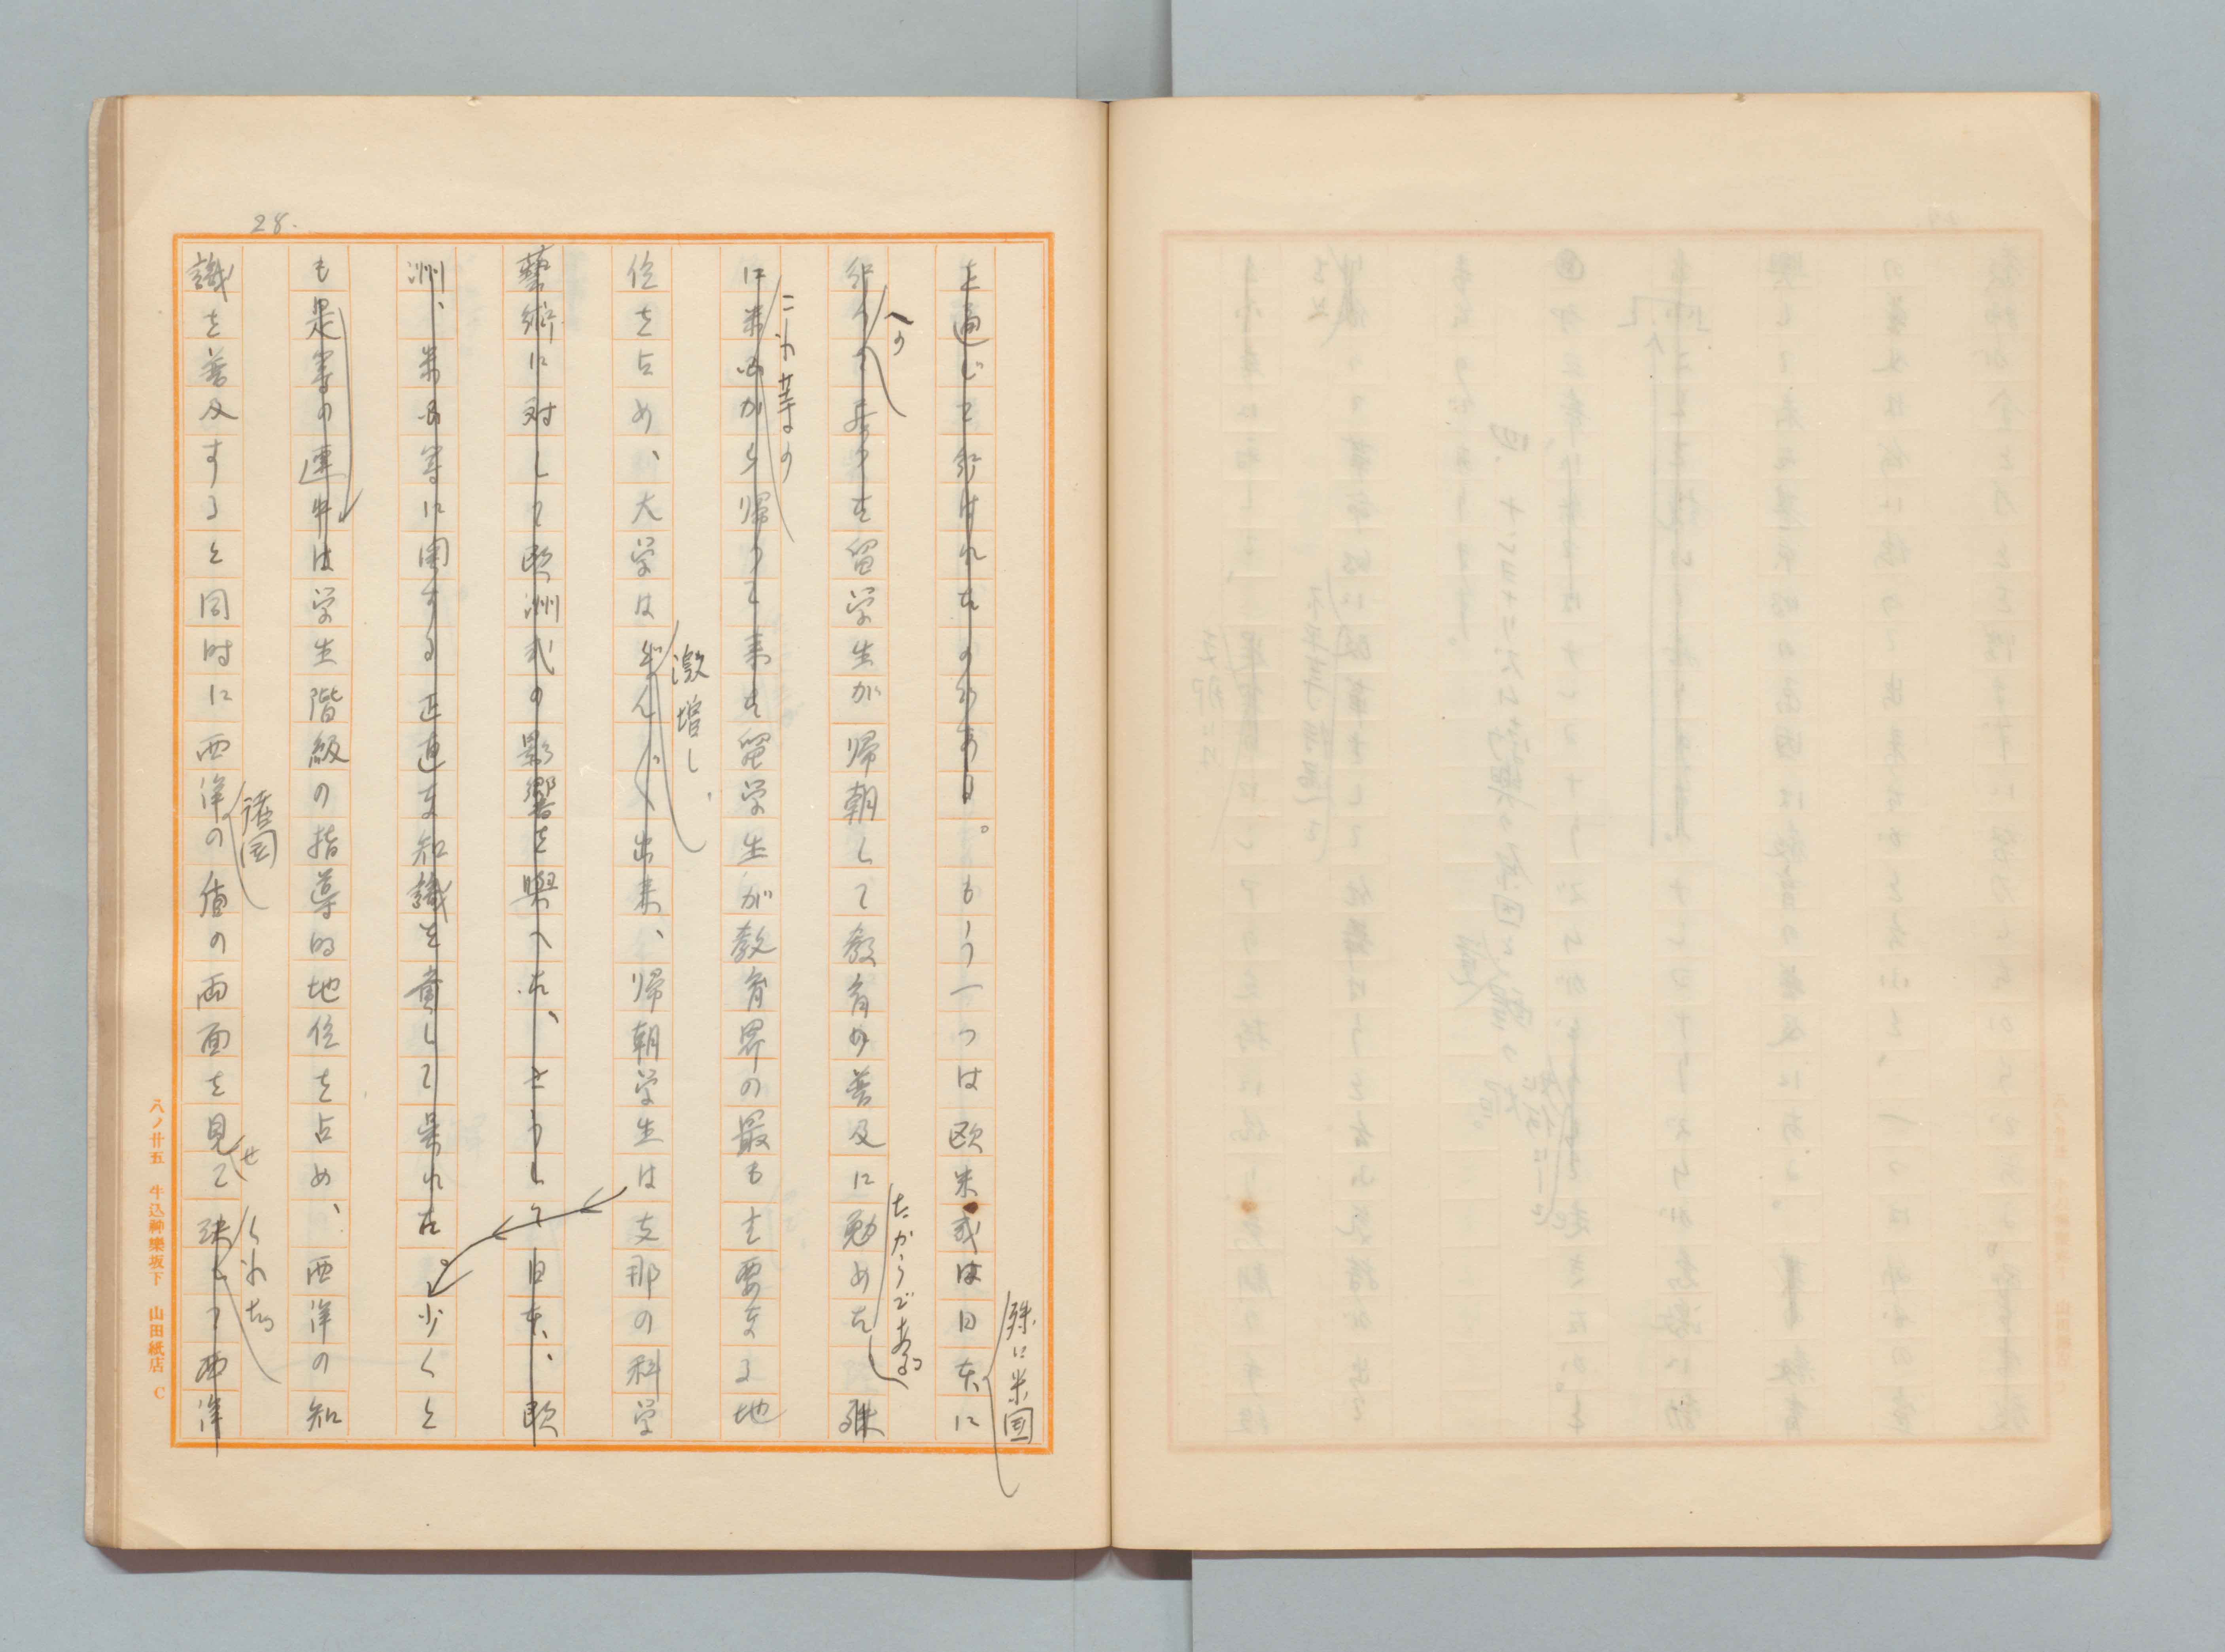 28.
を通じて行はれたのである。もう一つは欧米或は日本に
殊に米国
行つて居つた留学生が帰朝して教育の普及に勉めた 殊
への
たからである
に米国から帰つて来た留学生が教育界の最も主要なる地
これ等の
位を占め、大学はずんずん出来、帰朝学生は支那の科学
激増し、
藝術に対して欧洲式の影響を與へた、さうして日本、欧
洲、米国等に関する正直な知識を齎して呉れた 少くと
も是等の連中は学生階級の指導的地位を占め、西洋の知
識を普及すると同時に西洋の盾の両面を見て呉れて西洋
諸国
せ
くれた
八ノ廿五 牛込神樂坂下 山田紙店 C